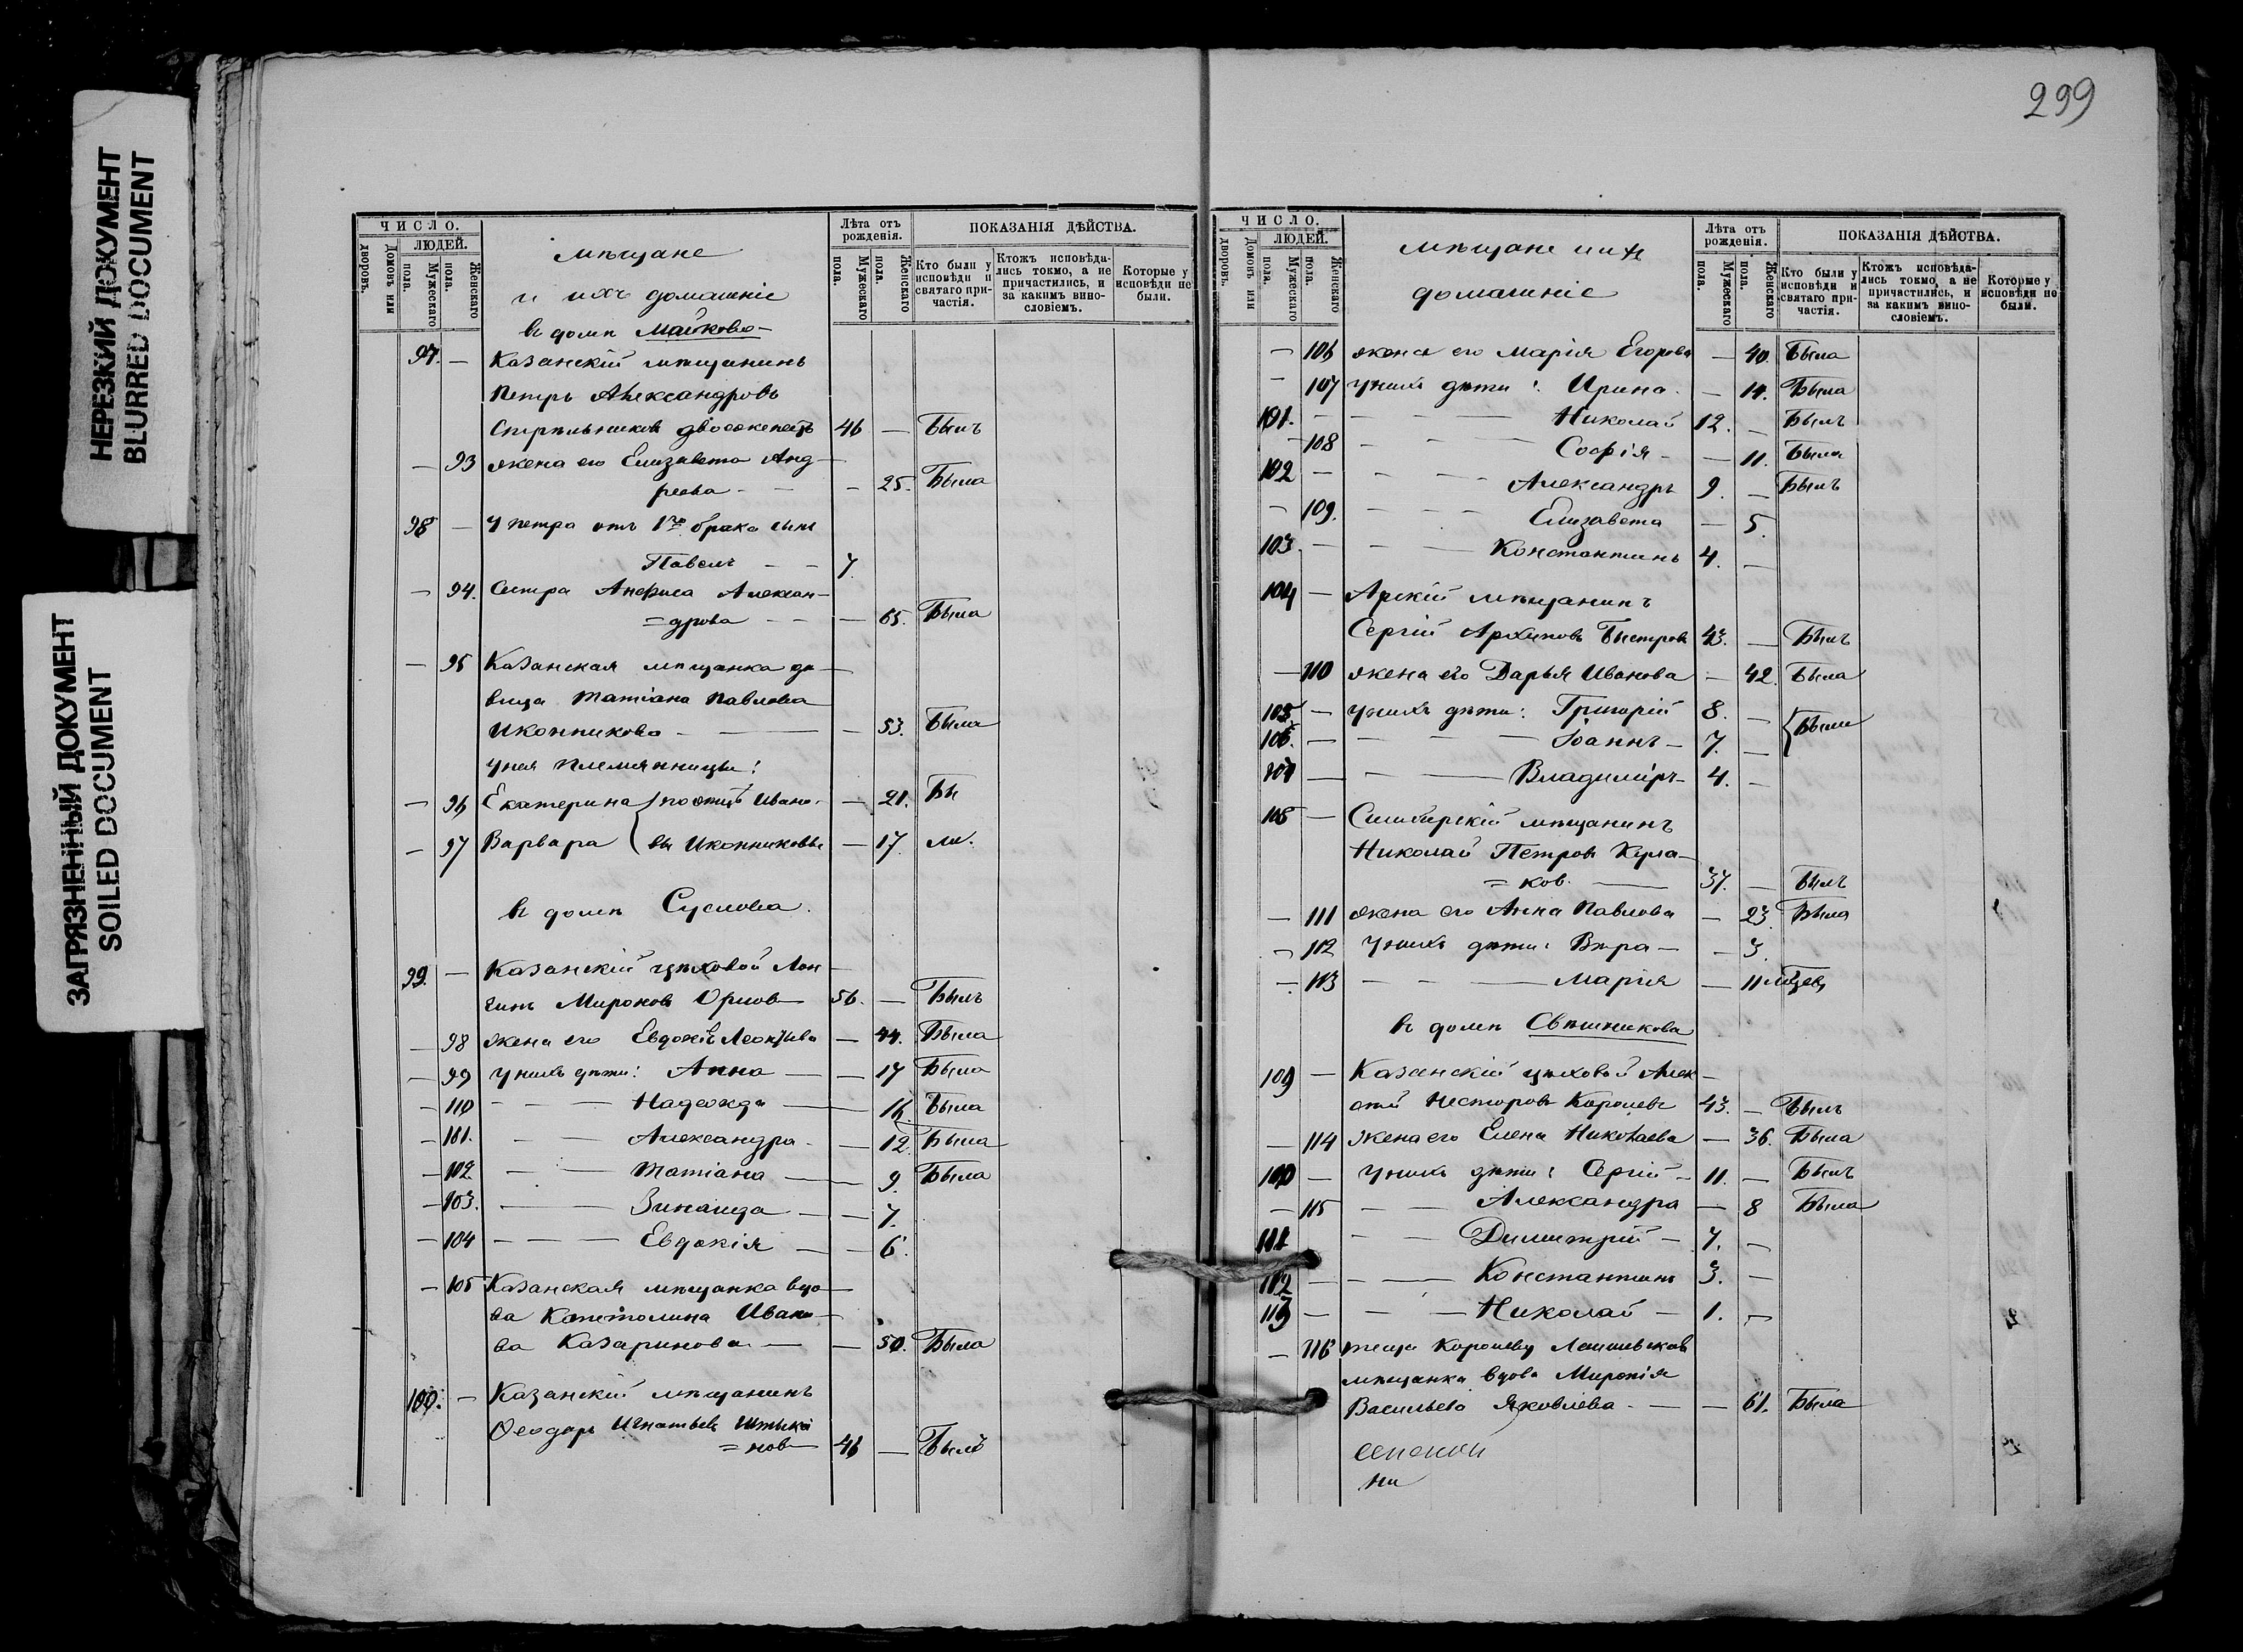 299
НЕРЕЗКИЙ ДОКУМЕНТ
BLURRED DOCUMENT
ЗАГРЯЗНЕННЫЙ ДОКУМЕНТ
SOILED DOCUMENT
ЧИСЛО.
ЛЮДЕЙ.
Домовъ или дворовъ.
Мужескаго пола.
Женскаго пола.
мѣщане
и ихъ домашніе
Лѣта отъ рожденія.
Мужескаго пола.
Женскаго пола.
ПОКАЗАНІЯ ДѢЙСТВА.
Кто были у исповѣди и святаго причастія.
Ктожъ исповѣдались токмо, а не причастились, и за какимъ винословіемъ.
Которые у исповѣди не были.
въ домѣ Майкова
97. — Казанскій мѣщанинъ
Петръ Александровъ
Стрѣльниковъ двоеженецъ 46 — Былъ
— 93 жена его Елизавета Анд-
реева — — 25. Была
98 — У Петра отъ 1го брака сынъ
Павелъ — — 7.
— 94. Сестра Анфиса Алексан-
=дрова — — — 65. Была
— 95 Казанская мѣщанка дѣ-
вица Татіана Павлова
Иконникова — — — 53. Была
У нея племянницы:
— 96 Екатерина } по отцѣ Ивано- — 21. Бы
— 97 Варвара { вы Иконниковы — 17. ли.
въ домѣ Суслова.
99. — Казанскій цѣховой Лон-
гинъ Мироновъ Орлов 56. — Былъ
— 98 жена его Евдокія Леонтьева — 44. Была
— 99 У нихъ дѣти: Анна — — 17 Была
— 110 — — — Надежда — 16 Была
— 101. — — Александра — — 12. Была
— 102. — — Татіана — — 9. Была
— 103. — — Зинаида — — 7.
— 104 — — — Евдокія — — 6.
— 105 Казанская мѣщанка вдо-
ва Капитолина Ивано-
ва Казаринова — — 50. Была
100. — Казанскій мѣщанинъ
Ѳеодоръ Игнатьевъ
=нов 46 — Былъ
ЧИСЛО.
ЛЮДЕЙ.
Домовъ или дворовъ.
Мужескаго пола.
Женскаго пола.
мѣщане и их
домашніе
Лѣта отъ рожденія.
Мужескаго пола.
Женскаго пола.
ПОКАЗАНІЯ ДѢЙСТВА.
Кто были у исповѣди и святаго причастія.
Ктожъ исповѣдались токмо, а не причастились, и за какимъ винословіемъ.
Которые у исповѣди не были.
— 106 жена его Марія Егорова — 40. Была
— 107 У нихъ дѣти: Ирина. — 14. Была
101. — — — — Николай 12. — Былъ
— 108 — — — Софія — — 11. Была
102 — — — Александръ 9. — Былъ
— 109. — — — Елизавета — 5.
103. — — — Константинъ 4. —
104 — Арскій мѣщанинъ
Сергій Архиповъ Быстровъ 43. — Былъ
— 110 жена его Дарья Иванова — 42. Была
105 — У нихъ дѣти: Григорій 8. — { Были
106. — — — — Іоаннъ — 7. —
107 — — — Владиміръ — 4. —
108 — Симбирскій мѣщанинъ
Николай Петровъ
=ков. — 37. — Былъ
— 111 жена его Анна Павлова — 23. Была
— 112 У нихъ дѣти: Вѣра — — 3.
— 113 — — — Марія — 11 мѣсяц.
въ домѣ Свѣшникова
109 — Казанскій цѣховой Алек-
сѣй Несторовъ Королевъ 43. — Былъ
— 114 жена его Елена Николаева — 36. Была
100 — У нихъ дѣти: Сергій — 11. — Былъ
— 115 — — Александра — 8 Была
111 — — Димитрій — 7. —
112 — — — Константинъ 3. —
113 — — — Николай — 1. —
— 116 теща Королеву Лаишевская
мѣщанка вдова Миропія
Васильева Яковлева. — — 61. Была